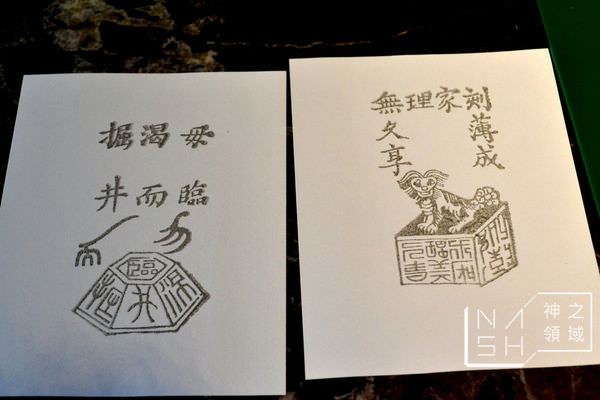 毋臨
渴而
掘井
勿
臨
渴
而
掘
井
刻薄成
家
理
無久享
NASH
神之
領域